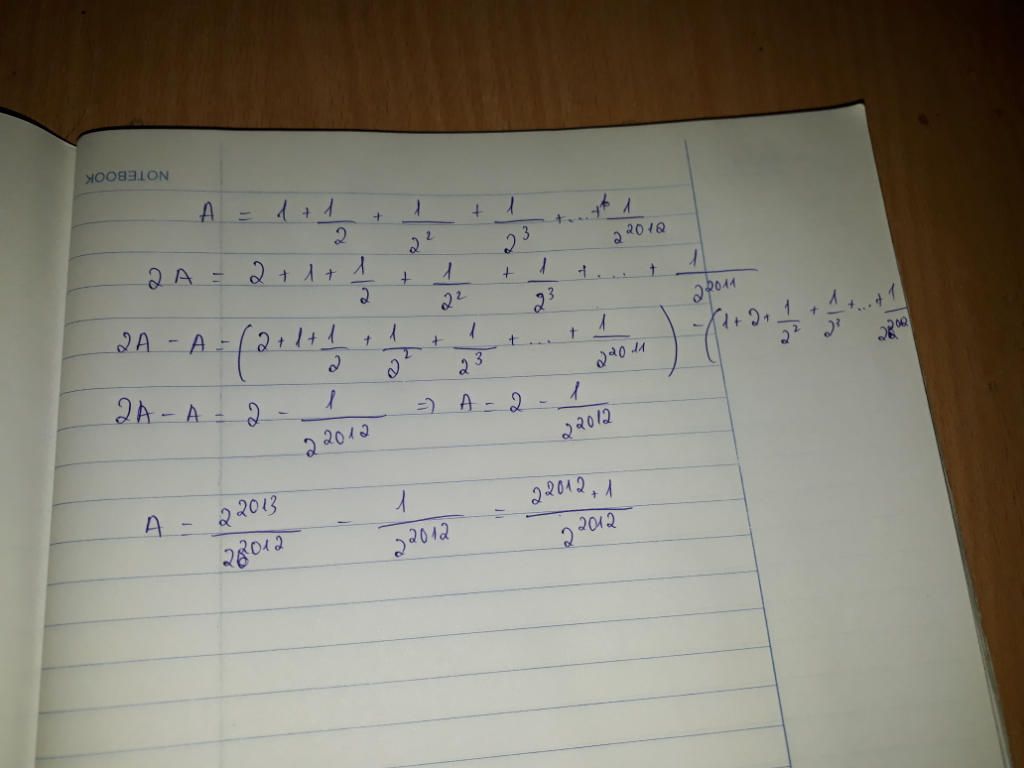 NOTEBOOK
A = 1 + 1/2 + 1/2² + 1/2³ + ... + 1/2²⁰¹²
2A = 2 + 1 + 1/2 + 1/2² + 1/2³ + ... + 1/2²⁰¹¹
2A - A = (2 + 1 + 1/2 + 1/2² + 1/2³ + ... + 1/2²⁰¹¹) - (1 + 2 + 1/2² + 1/2³ + ... + 1/2²⁰¹²
2A - A = 2 - 1/2²⁰¹² => A = 2 - 1/2²⁰¹²
A = 2²⁰¹³/2²⁰¹² - 1/2²⁰¹² = 2²⁰¹² + 1/2²⁰¹²